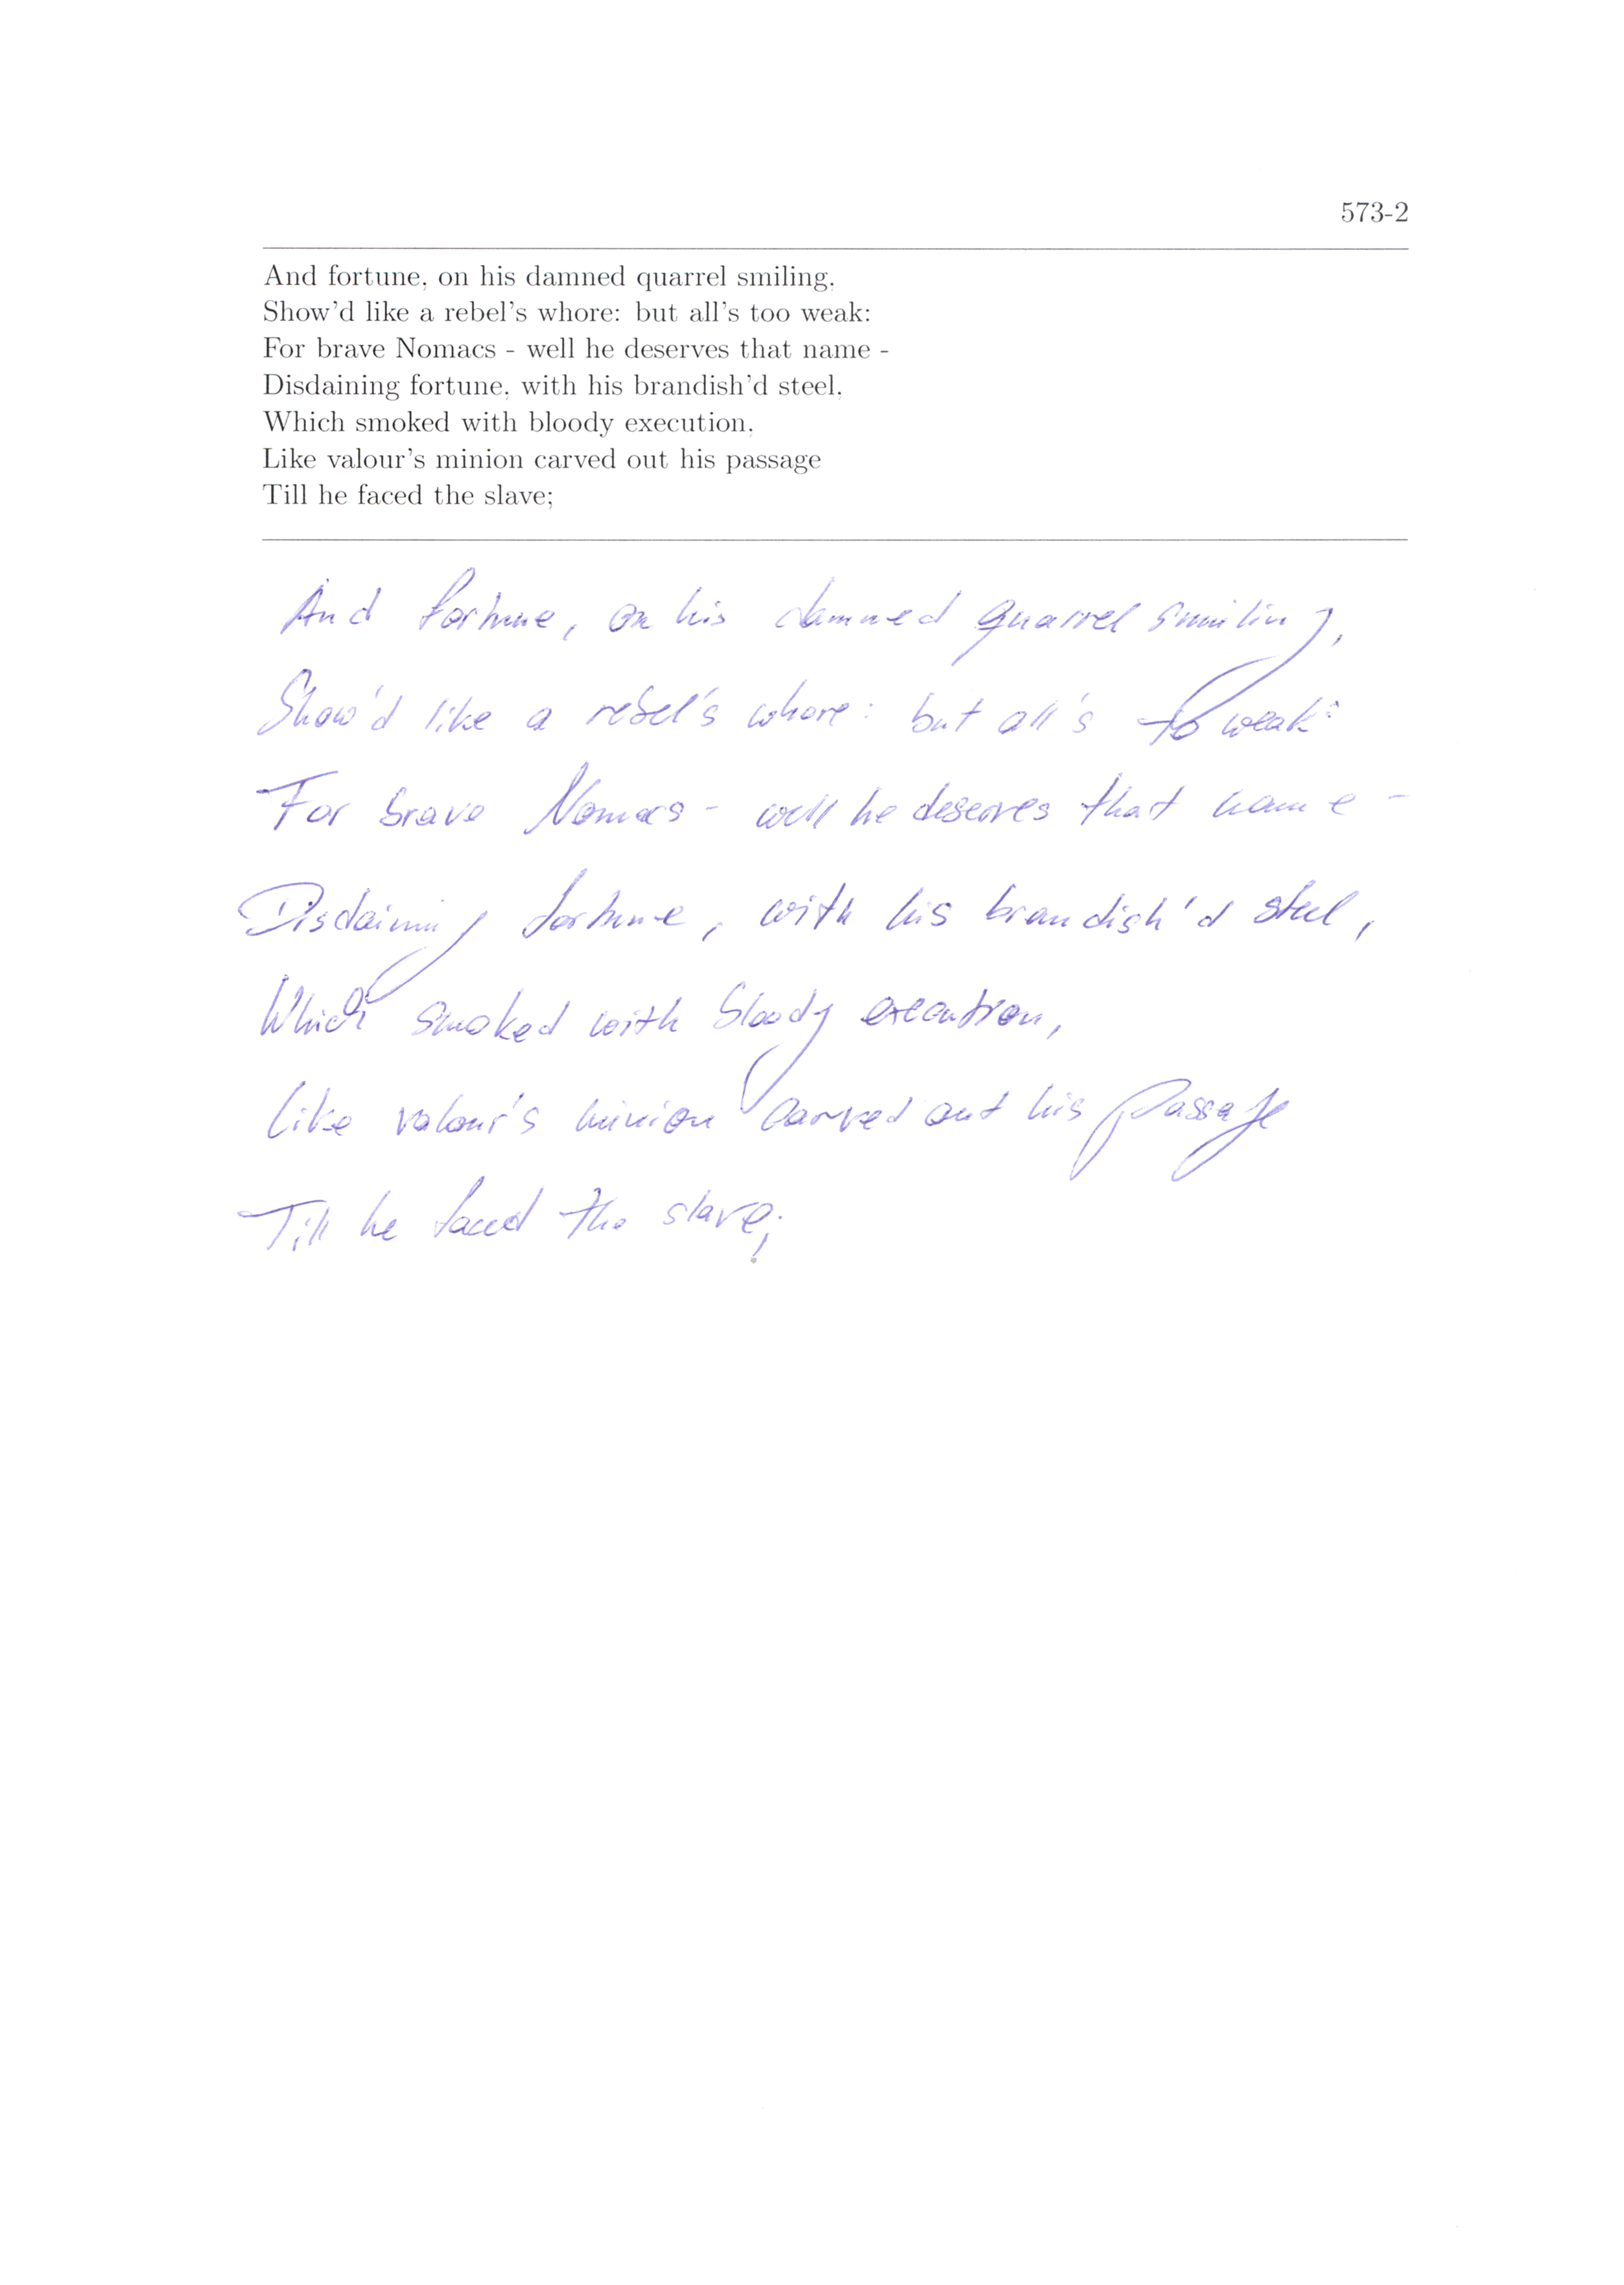 573-2
And fortune, on his damned quarrel smiling,
Show'd like a rebel's whore: but all's too weak:
For brave Nomacs - well he deserves that name -
Disdaining fortune, with his brandish'd steel,
Which smoked with bloody execution,
Like valour's minion carved out his passage
Till he faced the slave;
And fortune, on his damned quarrel smiling,
Show'd like a rebel's whore: but all's to weak:
For brave Nomacs - well he deserves that name -
Disdaining fortune, with his brandish'd steel,
Which smoked with bloody execution,
Like valour's minion carved out his passage
Till he faced the slave;